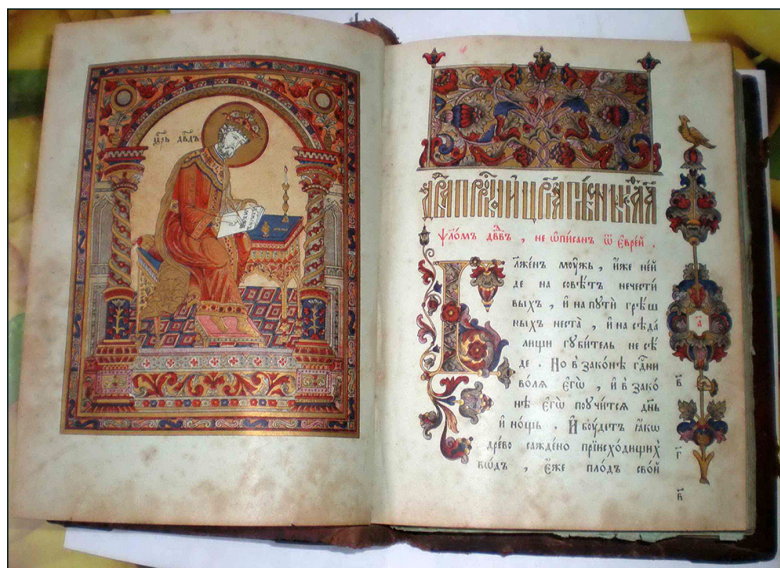 цр҃ь дв҃дъ
ѱало́мъ дв҃дъ, не ѡ҆пи́санъ ѿ є҆вре́й.
Бл҃же́нъ моу́жь, и҆́же не и҆́
де на совѣ́тъ нечести́
выхъ, и҆ на пꙋти́ грѣ́ш
ныхъ не ста̀, и҆ на сѣда́
лищи гꙋби́тель не сѣ́
де. Но в зако́нѣ гд҇ни
во́лѧ є҆гѡ̀, и҆ в зако́
нѣ є҆гѡ̀ поꙋчи́тсѧ дн҃ь
и҆ но́щь. И҆ боу́детъ ꙗ҆́кѡ
дре́во сажде́но при и҆схо́дищихъ
во́дъ, є҆́же пло́дъ сво́й
а҃
в҃
г҃